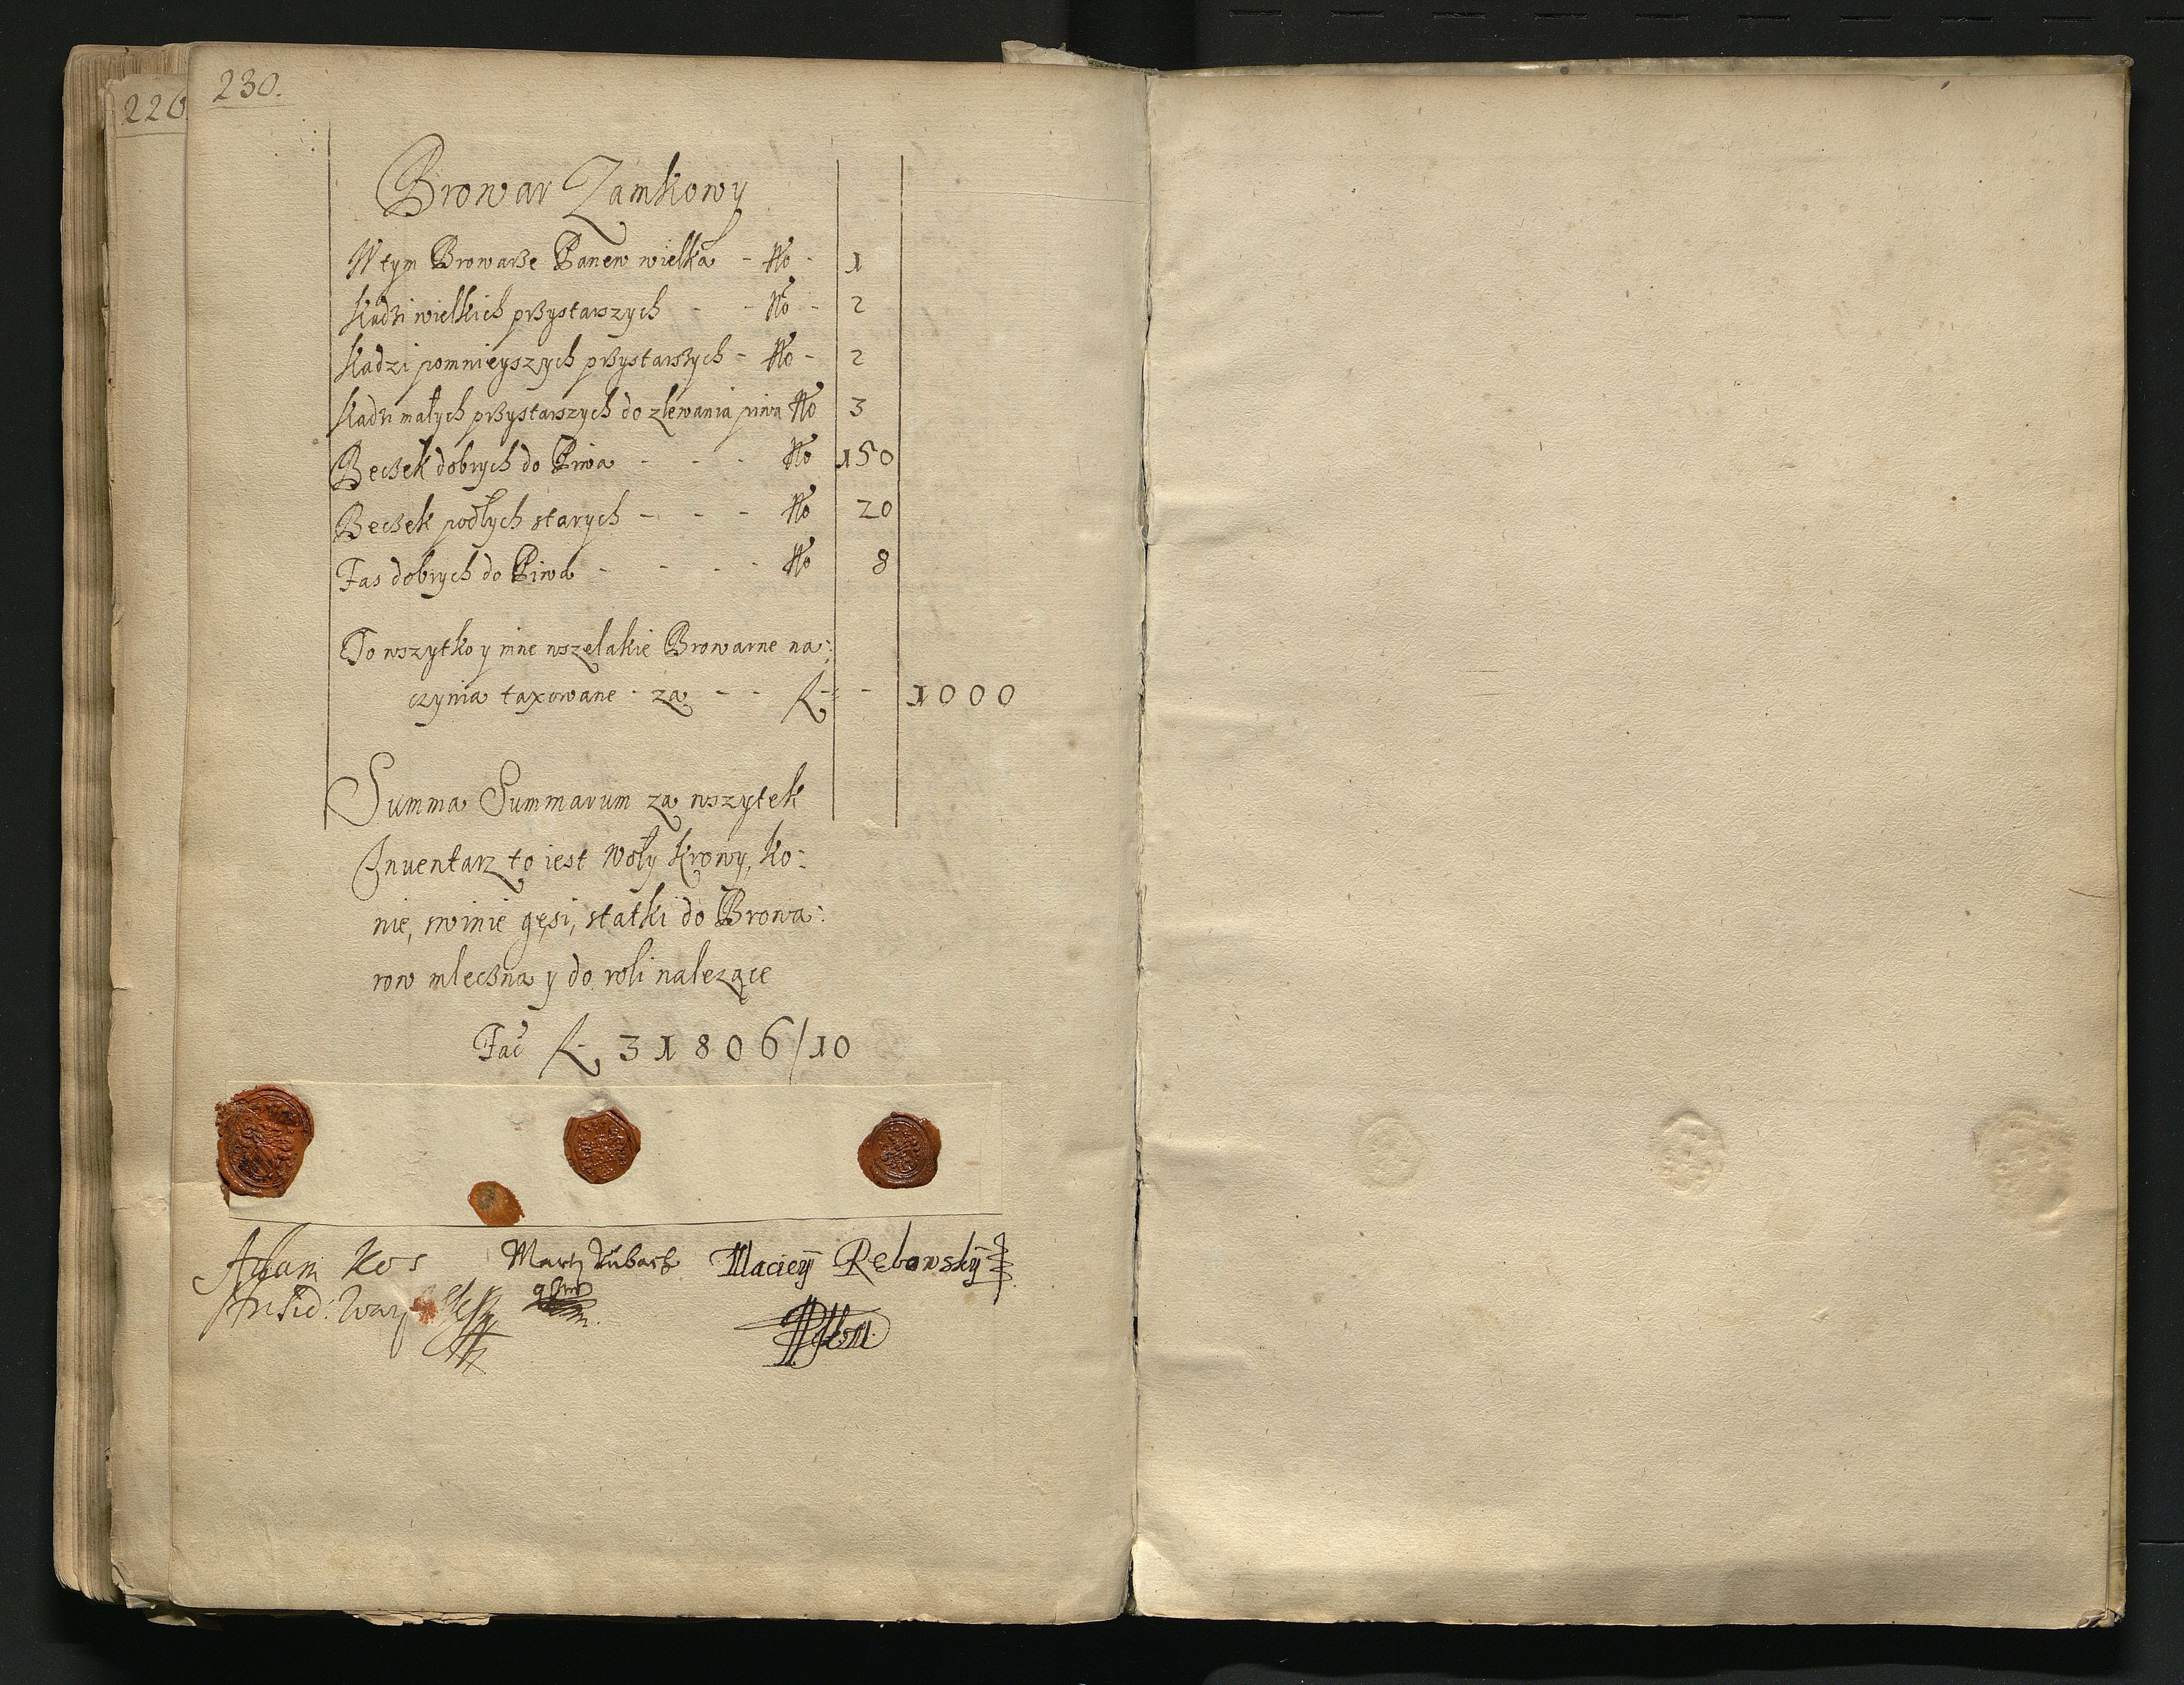 226
230.
Browar Zamkowy
W tym Browarze Panew wielka - No - 1
Kadzi wielkich przystarszych - - No - 2
Kadzi pomnieyszych przystarszych - No - 2
Kadzi małych przystarszych do zlewania piwa No 3
Beczek dobrych do Piwa - - - No 150
Beczek podłych starych - - - No 20
Fas dobrych do Piwa - - - - No 8
To wszytko y inne wszelakie Browarne na:
czynia taxowane - za - - f - - 1000
Summa Summarum za wszytek
Inuentarz to iest Woły Krowy, Ko:
nie, swinie gęsi, statki do Browa:
row mleczna y do roli nalezące
Fac f 31806/10
Adam Kos
Maciey Rębowsky